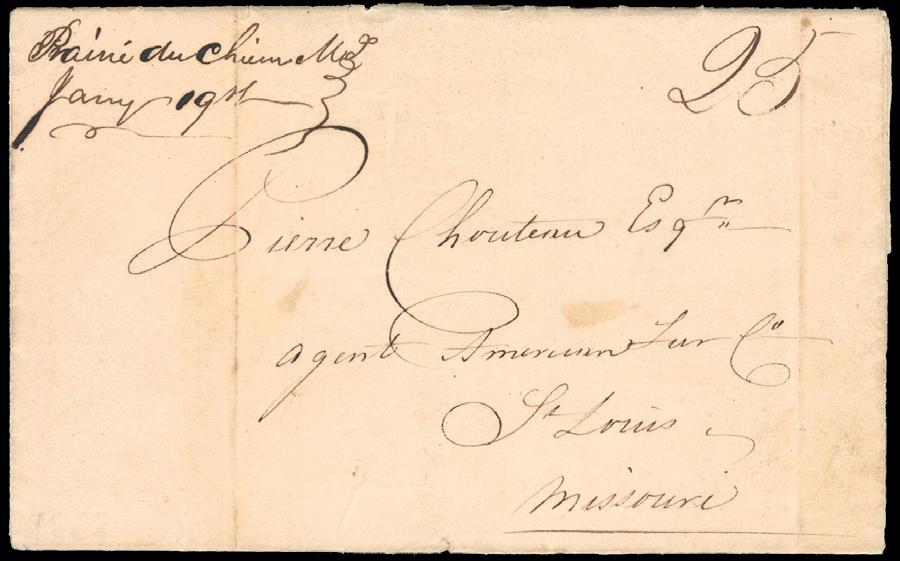 Prairie du Chien M.T.
Jany 19th
25
Pierre Chouteau Esqr
Agent American Fur Co
St Louis
Missouri